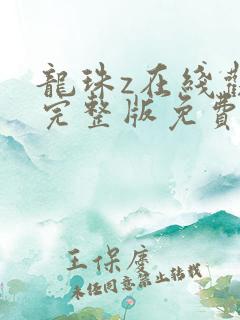 龍珠z在綫觀
完整版免費
王保慶
未經同意禁止轉載